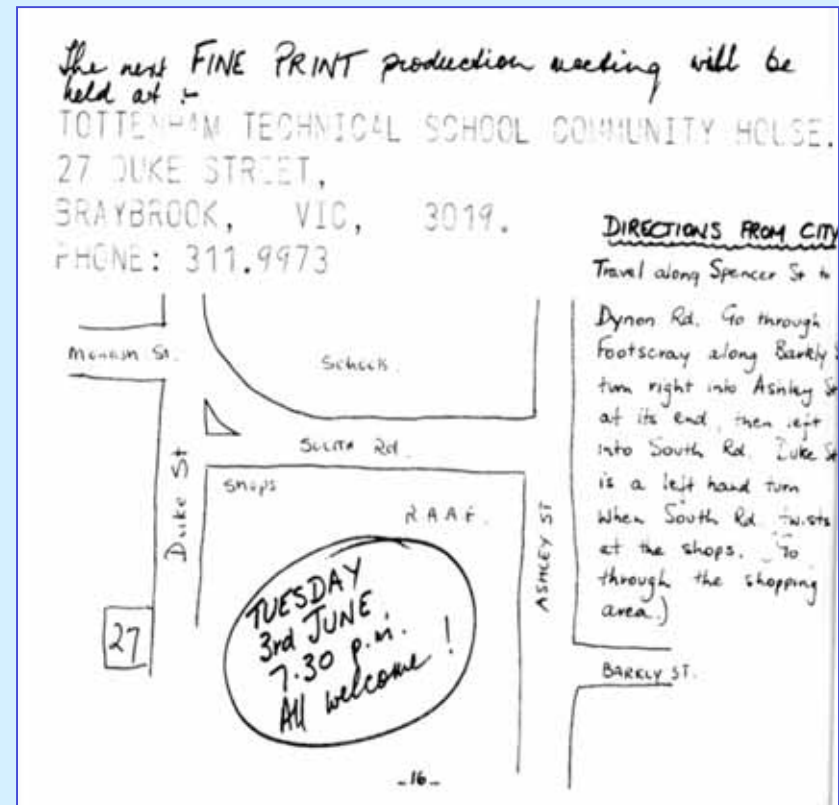 The next FINE PRINT production meeting will be
held at :-
TOTTENHAM TECHNICAL SCHOOL COMMUNITY HOUSE.
27 DUKE STREET,
BRAYBROOK, VIC, 3019.
PHONE: 311.9973
DIRECTIONS FROM CITY
Travel along Spencer St to
Dynon Rd. Go through
Footscray along Barkly
turn right into Ashley St
at its end, then left
into South Rd. Duke St
is a left hand turn
when South Rd. twists
at the shops. Go
through the shopping
area.)
St.
School.
South Rd.
Shops
R.A.A.F.
Duke St
ASHLEY ST
27
TUESDAY
3rd JUNE
7.30 p.m.
All welcome!
BARKLY ST.
-16-